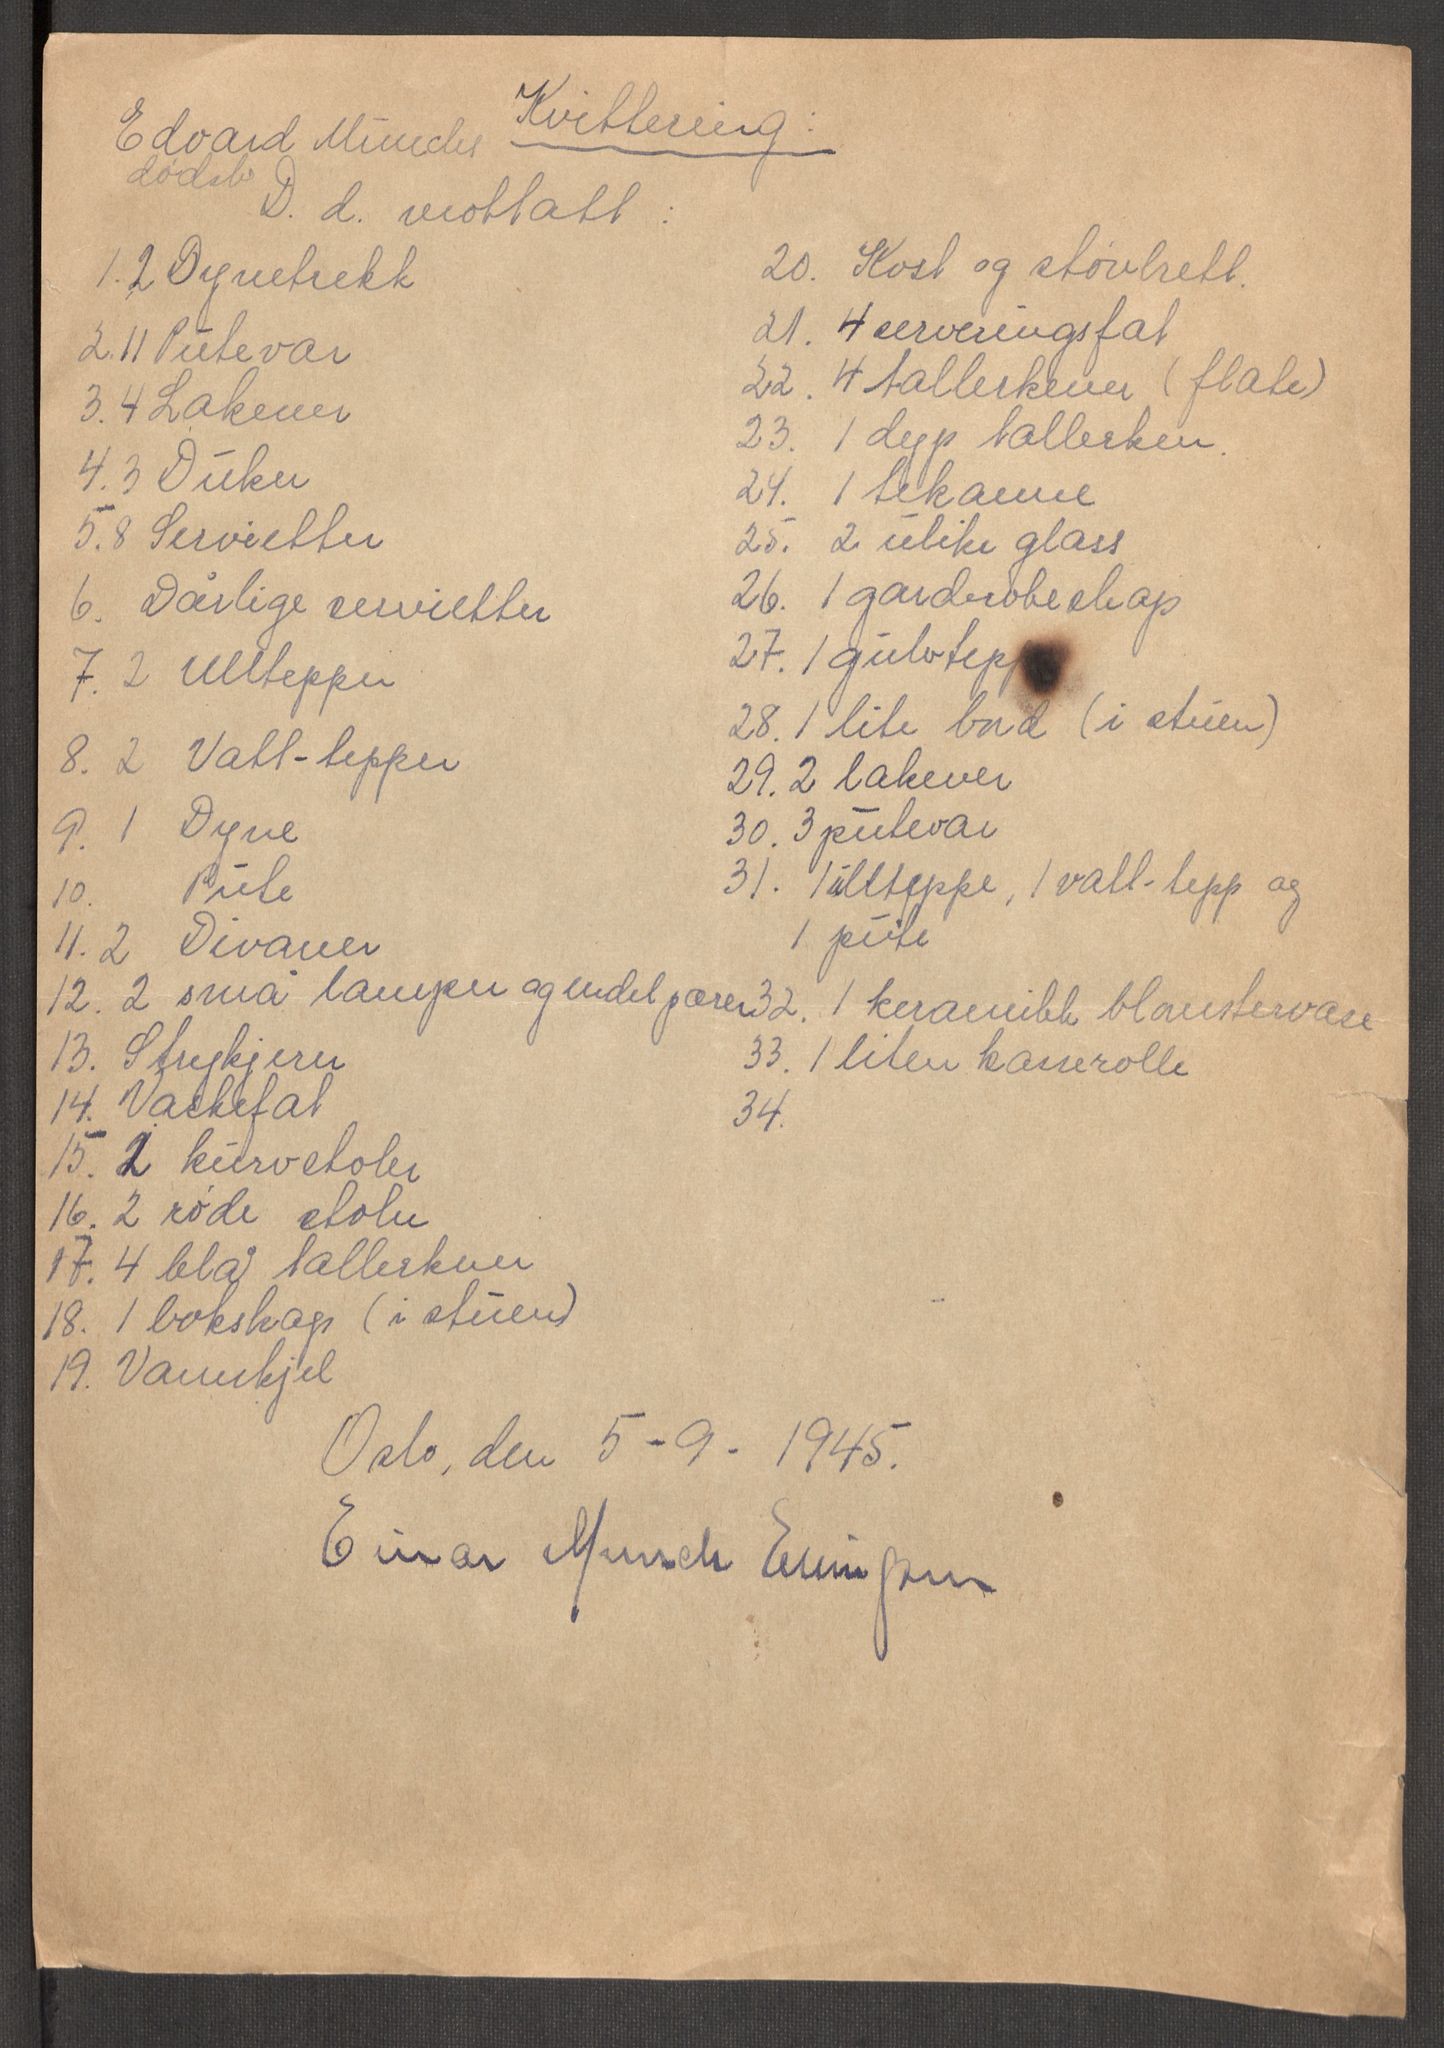 Kvittering:
Edvard Munchs
dødsbo
D. d. mottatt :
1. 2 Dynetrekk
2. 11 Putevar
3. 4 Lakener
4. 3 Duker
5. 8 Servietter
6. Dårlige servietter
7. 2 Ulltepper
8. 2 Vatt-tepper
9. 1 Dyne
10. Pute
11. 2 Divaner
12. 2 små lamper og endel pærer
13. Strykjern
14. Vaskefat
15. 2 kurvstoler
16. 2 røde stoler
17. 4 blå tallerkner
18. 1 bokskap (i stuen)
19. Vannkjel
20. Kost og støvbrett.
21. 4 serveringsfat
22. 4 tallerkener (flate)
23. 1 dyp tallerken.
24. 1 tekanne
25. 2 ulike glass
26. 1 garderobeskap
27. 1 gulvtepp
28. 1 lite bord (i stuen)
29. 2 lakener
30. 3 putevar
31. 1 ullteppe, 1 vatt-tepp og
1 pute
32. 1 keramikk blomstervase
33. 1 liten kasserolle
34.
Oslo, den 5-9-1945.
Einar Munch Ellingsen